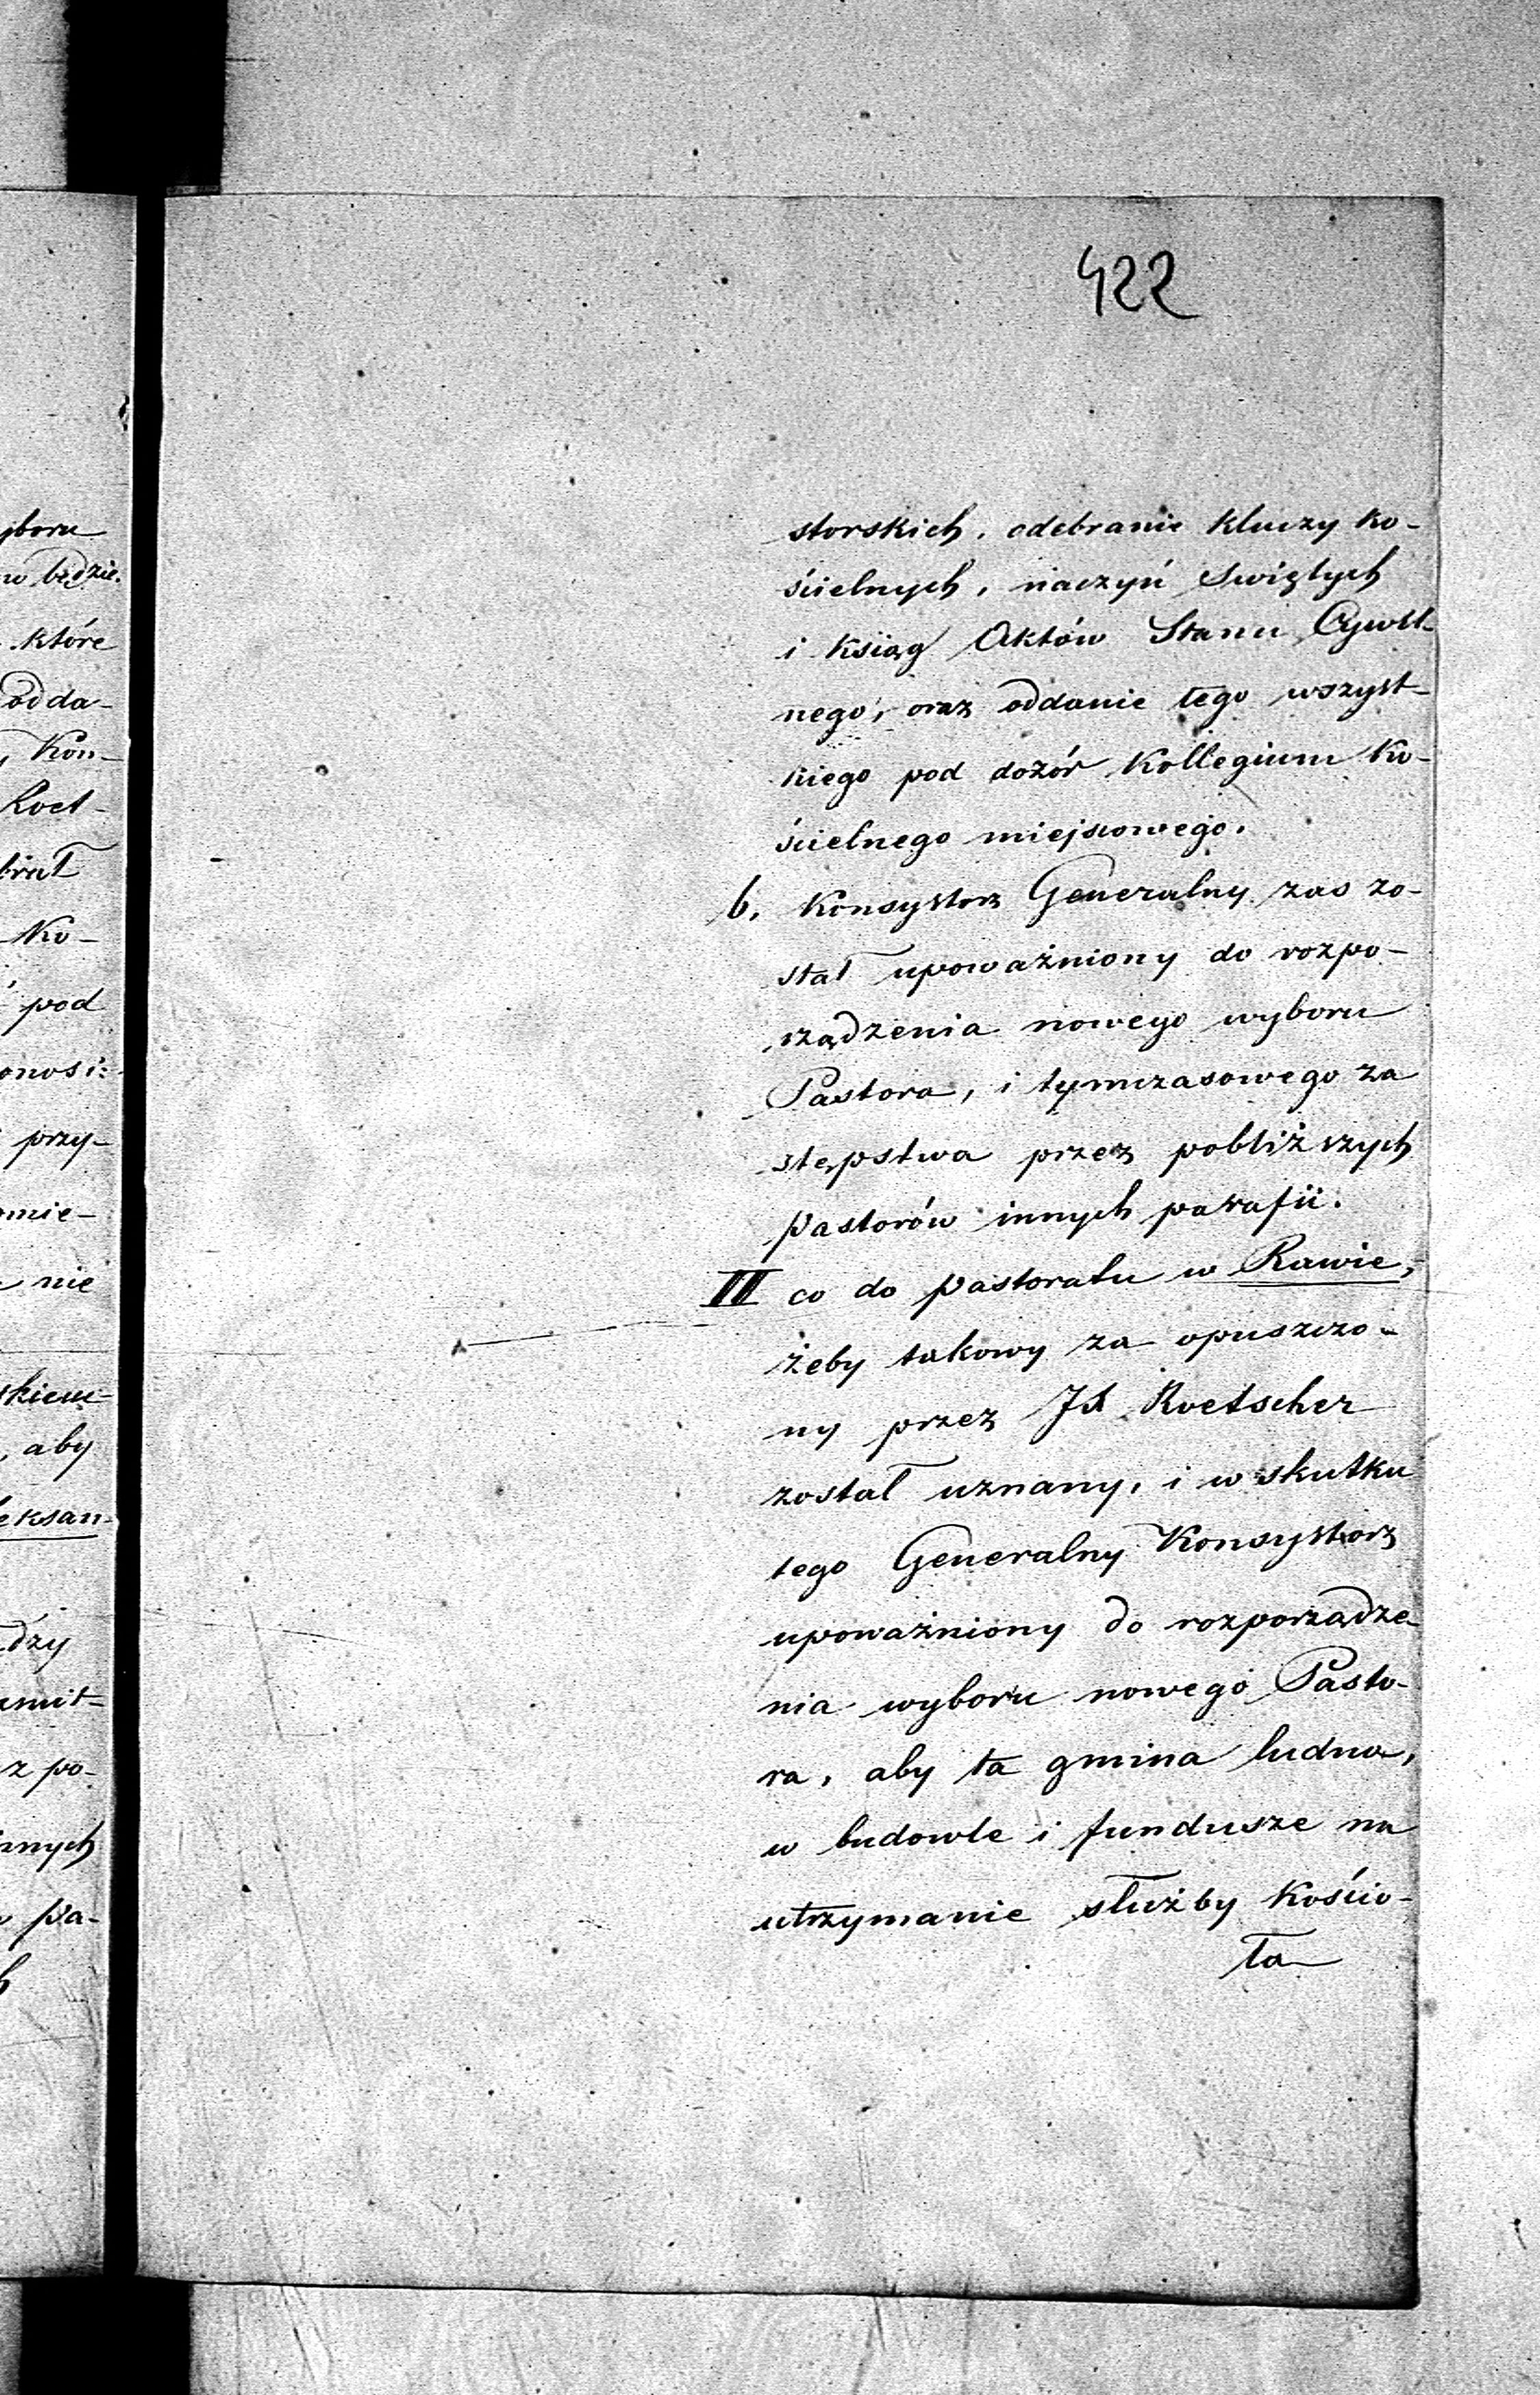 422
yboru
w będzie.
które
odda-
, Kon-
Roet-
brał
Ko-
pod
onosi:
przy-
omie-
nie
skiem-
, aby
eksan-
dzy
z po-
nnych
pa-
storskich, odebranie kluczy ko-
ścielnych, naczyń Swiętych
i ksiąg Aktów Stanu Cywil-
nego, oraz oddanie tego wszyst-
kiego pod dozór Kollegium Ko-
ścielnego miejscowego.
b. Konsystorz Generalny zas zo-
stał upoważniony do rozpo-
rządzenia nowego wyboru
Pastora, i tymczasowego za
stępstwa przez pobliższych
Pastorów innych parafii.
III co do pastoratu w Rawie,
żeby takowy za opuszczo-
ny przez JX Roetscher
został uznany, i w skutku
tego Generalny Konsystorz
upoważniony do rozporządze-
nia wyboru nowego Pasto-
ra, aby ta gmina ludna,
w budowle i fundusze na
utrzymanie służby Kościo-
ła